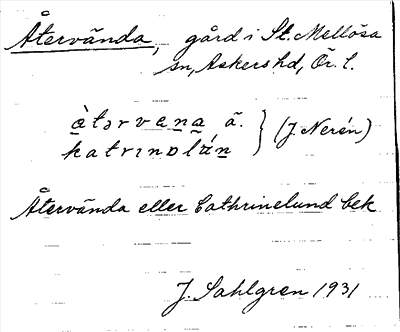 Återvända, gård i St. Mellösa
sn, Askers hd, Ör. l.
àtərvena ä̃. } (J. Nerén)
katrɪnɒlún
Återvända eller Cathrinelund bek
J. Sahlgren 1931